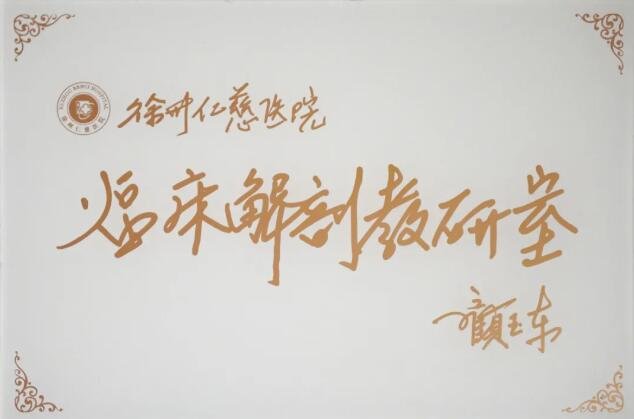 XUZHOU RENCI HOSPITAL
徐州仁慈医院
徐州仁慈医院
临床解剖教研室
顾玉东